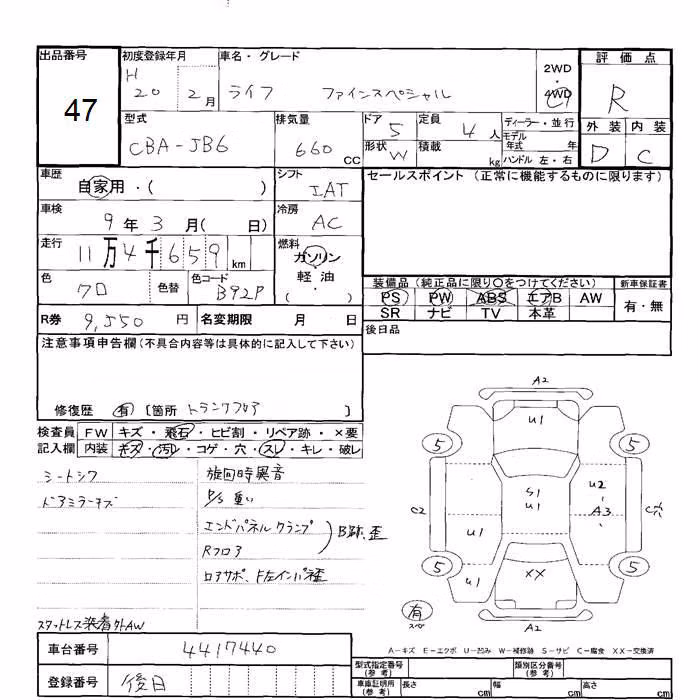 出品番号 初度登録年月 車名・グレード 2WD・4WD 評価点
47 H 20 2月 ライフ ファインスペシャル R
型式 排気量 ドア 定員 ディーラー・並行 外装 内装
CBA-JB6 660 CC 5 4人 モデル年式 年
形状 W 積載 kg ハンドル 左・右 D C
車歴 シフト セールスポイント (正常に機能するものに限ります)
自家用・( ) IAT
車検 冷房
9年3月( 日) AC
走行 燃料
11万4千659km ガソリン
軽油
( ・ )
色 色替 色コード
クロ B92P
装備品 (純正品に限り○をつけてください) 新車保証書
PS PW ABS エアB AW 有・無
SR ナビ TV 本革
R券 9,550円 名変期限 月 日
後日品
注意事項申告欄(不具合内容等は具体的に記入して下さい)
修復歴 有 [箇所 トランクフロア ]
検査員 FW キズ・飛石・ヒビ割・リペア跡・×要
記入欄 内装 キズ・汚レ・コゲ・穴・スレ・キレ・破レ
シートシワ 旋回時異音
ドアミラーキズ P/S重い
エンドパネルクランプ
Rフロア B跡、歪
スタットレス装着外AW
A2
U1
5 5
S1
U1
U2
A3
C2
U1
U1
XX
5 5
有
スペ
A2
A-キズ E-エクボ U-凹み W-補修跡 S-サビ C-腐食 XX-交換済
車台番号 4417440
登録番号 後日
型式指定番号 (参考) 類別区分番号 (参考)
車庫証明用 (参考) 長さ cm 幅 cm 高さ cm